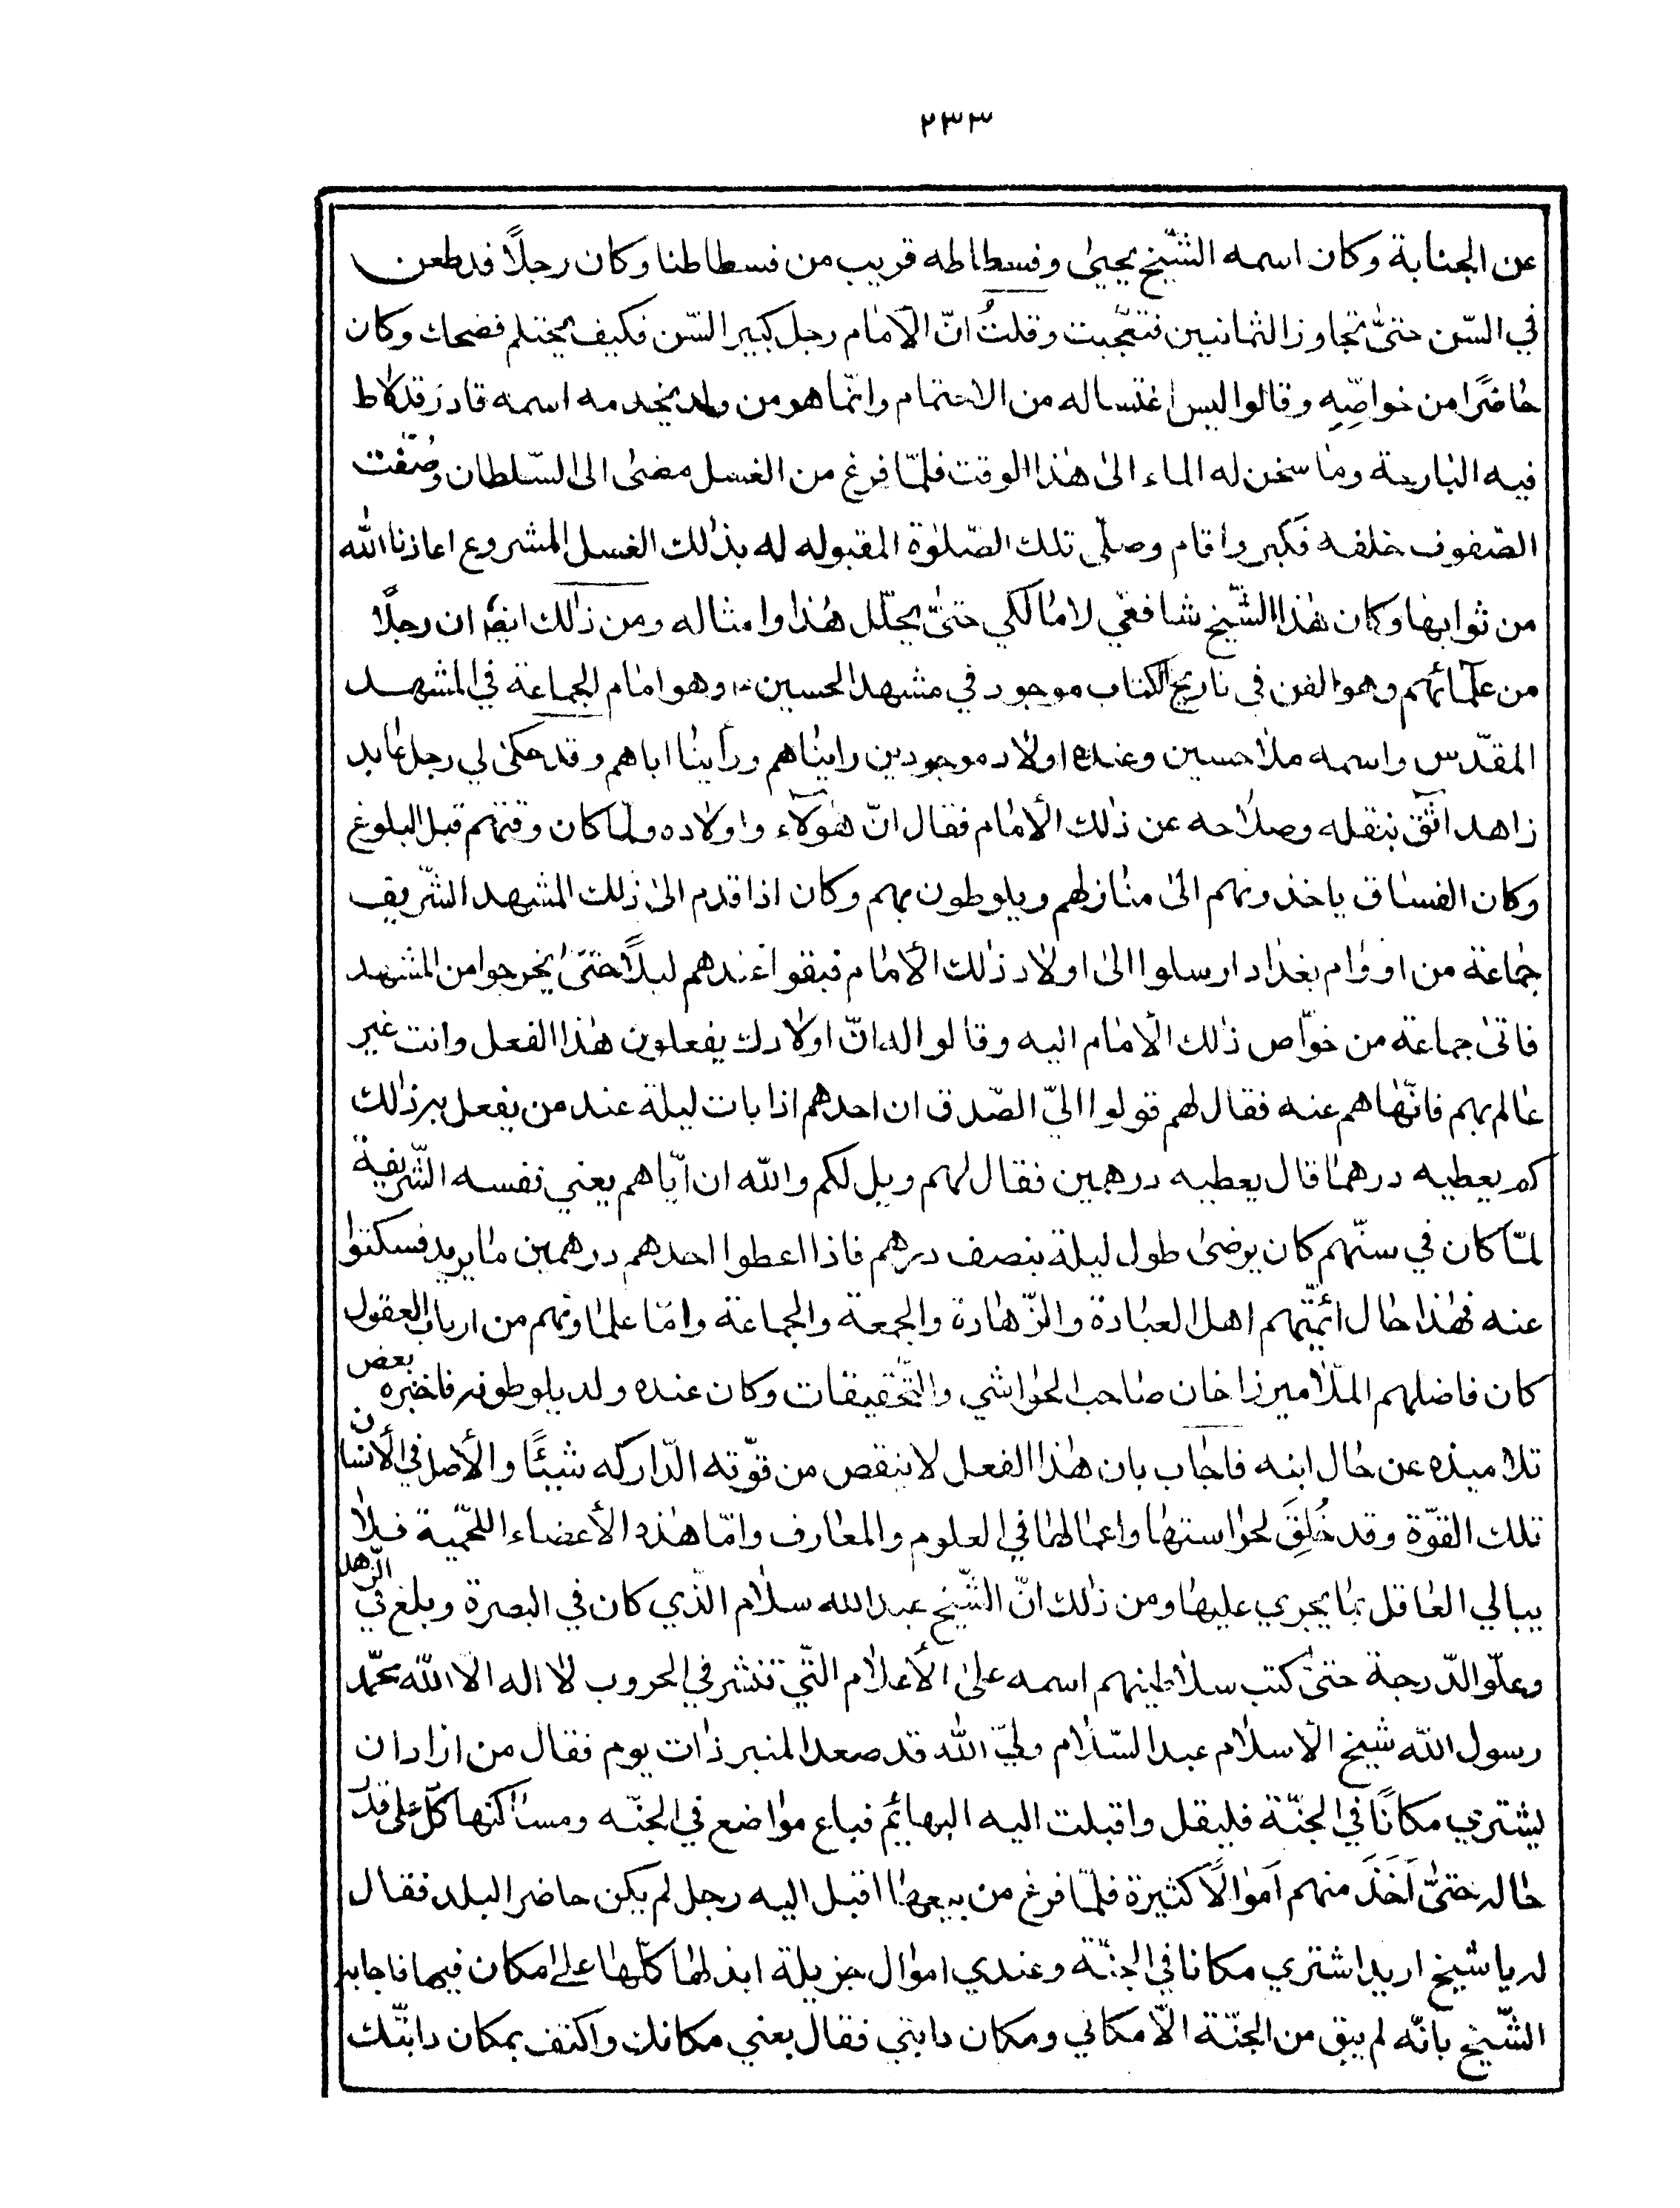 ٢٣٣
عن الجنابة وكان اسمه الشيخ يحيى وفسطاطه قريب من فسطاطنا وكان رجلًا قد طعن
في السّن حتىّ تجاوز الثمانين فتعجّبت وقلتُ انّ الامام رجل كبير السّن فكيف يحتلم فضحك وكان
حاضرًا من خواصّهِ وقالوا ليس اغتساله من الاحتمام وانّما هو من ولد يخدمه اسمه قادر قد لاط
فيه البارحة وما سخن له الماء الى هذا الوقت فلمّا فرغ من الغسل مضى الى السّلطان وصُفّت
الصّفوف خلفه فكبر واقام وصلّى تلك الصّلوة المقبوله له بذلك الغسل المشروع اعاذنا الله
من ثوابها وكان هذا الشّيخ شافعي لا مالكي حتىّ يحلّل هذا وامثاله ومن ذلك ايضا ان رجلًا
من علمائهم وهو الفن في تاريخ الكتاب موجود في مشهد الحسين وهو امام الجماعة في المشهد
المقدّس واسمه ملا حسين وعنده اولاد موجودين رايناهم ورأينا اباهم وقد حكى لي رجل عابد
زاهد اثق بنقله وصلاحه عن ذلك الأمام فقال انّ هؤلاء واولاده ولما كان وقتهم قبل البلوغ
وكان الفساق ياخذونهم الى منازلهم ويلوطون بهم وكان اذا قدم الى ذلك المشهد الشّريف
جماعة من اورام بغداد ارسلوا الى اولاد ذلك الأمام فبقوا عندهم ليلًا حتىّ يخرجوا من المشهد
فاتى جماعة من خوّاص ذلك الامام اليه وقالوا له انّ اولادك يفعلون هذا الفعل وانت غير
عالم بهم فانّهاهم عنه فقال لهم قولوا اليّ الصّدق ان احدهم اذا بات ليلة عند من يفعل به ذلك
كم يعطيه درهما قال يعطيه درهمين فقال لهم ويل لكم والله ان ايّاهم يعني نفسه الشّريفة
لمّا كان في سنّهم كان يرضى طول ليلة بنصف درهم فاذا اعطوا احدهم درهمين ما يريد فسكتوا
عنه فهذا حال ائمّتهم اهل العبادة والزّهادة والجمعة والجماعة وامّا علماؤهم من ارباب العقول
كان فاضلهم الملّا ميرزا خان صاحب الحواشي والتّحقيقات وكان عنده ولد يلوطونه فاخبره بعض
تلاميذه عن حال ابنه فاجاب بان هذا الفعل لا ينقص من قوّته الدّاركه شيئًا والأصل في الأنسان
تلك القوّة وقد خُلِقَ لحراستها واعمالها في العلوم والمعارف وامّا هذه الأعضاء اللّحميّة فلا
يبالي العاقل بما يجري عليها ومن ذلك انّ الشّيخ عبد الله سلام الّذي كان في البصرة وبلغ في الزّهد
وعلّو الدّرجة حتىّ كتب سلاطينهم اسمه على الأعلام التّي تنشر في الحروب لا اله الا الله محمّد
رسول الله شيخ الاسلام عبد السّلام وليّ الله قد صعد المنبر ذات يوم فقال من اراد ان
يشتري مكانًا في الجنّة فليقل واقبلت اليه البهائم فباع مواضع في الجنّه ومساكنها كلّ على قدر
حاله حتىّ اَخَذَ منهم اَموالًا كثيرة فلمّا فرغ من بيعها اقبل اليه رجل لم يكن حاضر البلد فقال
له يا شيخ اريد اشتري مكانا في الجنّة وعندي اموال جزيلة ابذلها كلّها على مكان فيها فاجابه
الشّيخ بانّه لم يبق من الجنّة الّا مكاني ومكان دابتي فقال بعني مكانك واكتف بمكان دابتّك